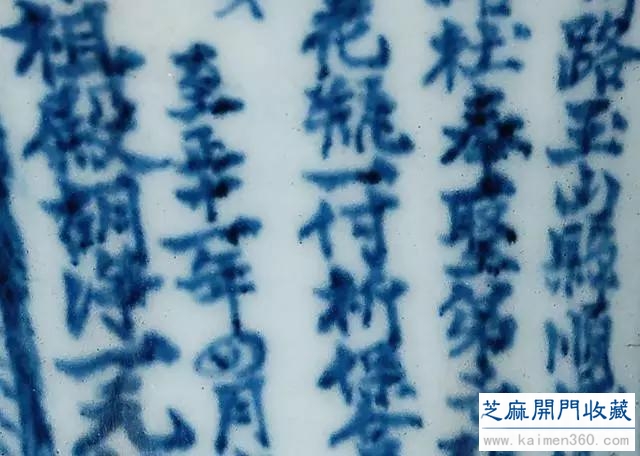 路玉山縣順
社奉聖弟子
花瓶一付祈保合
至正十一年四月
祖殿胡淨一元
芝麻開門收藏
www.kaimen360.com